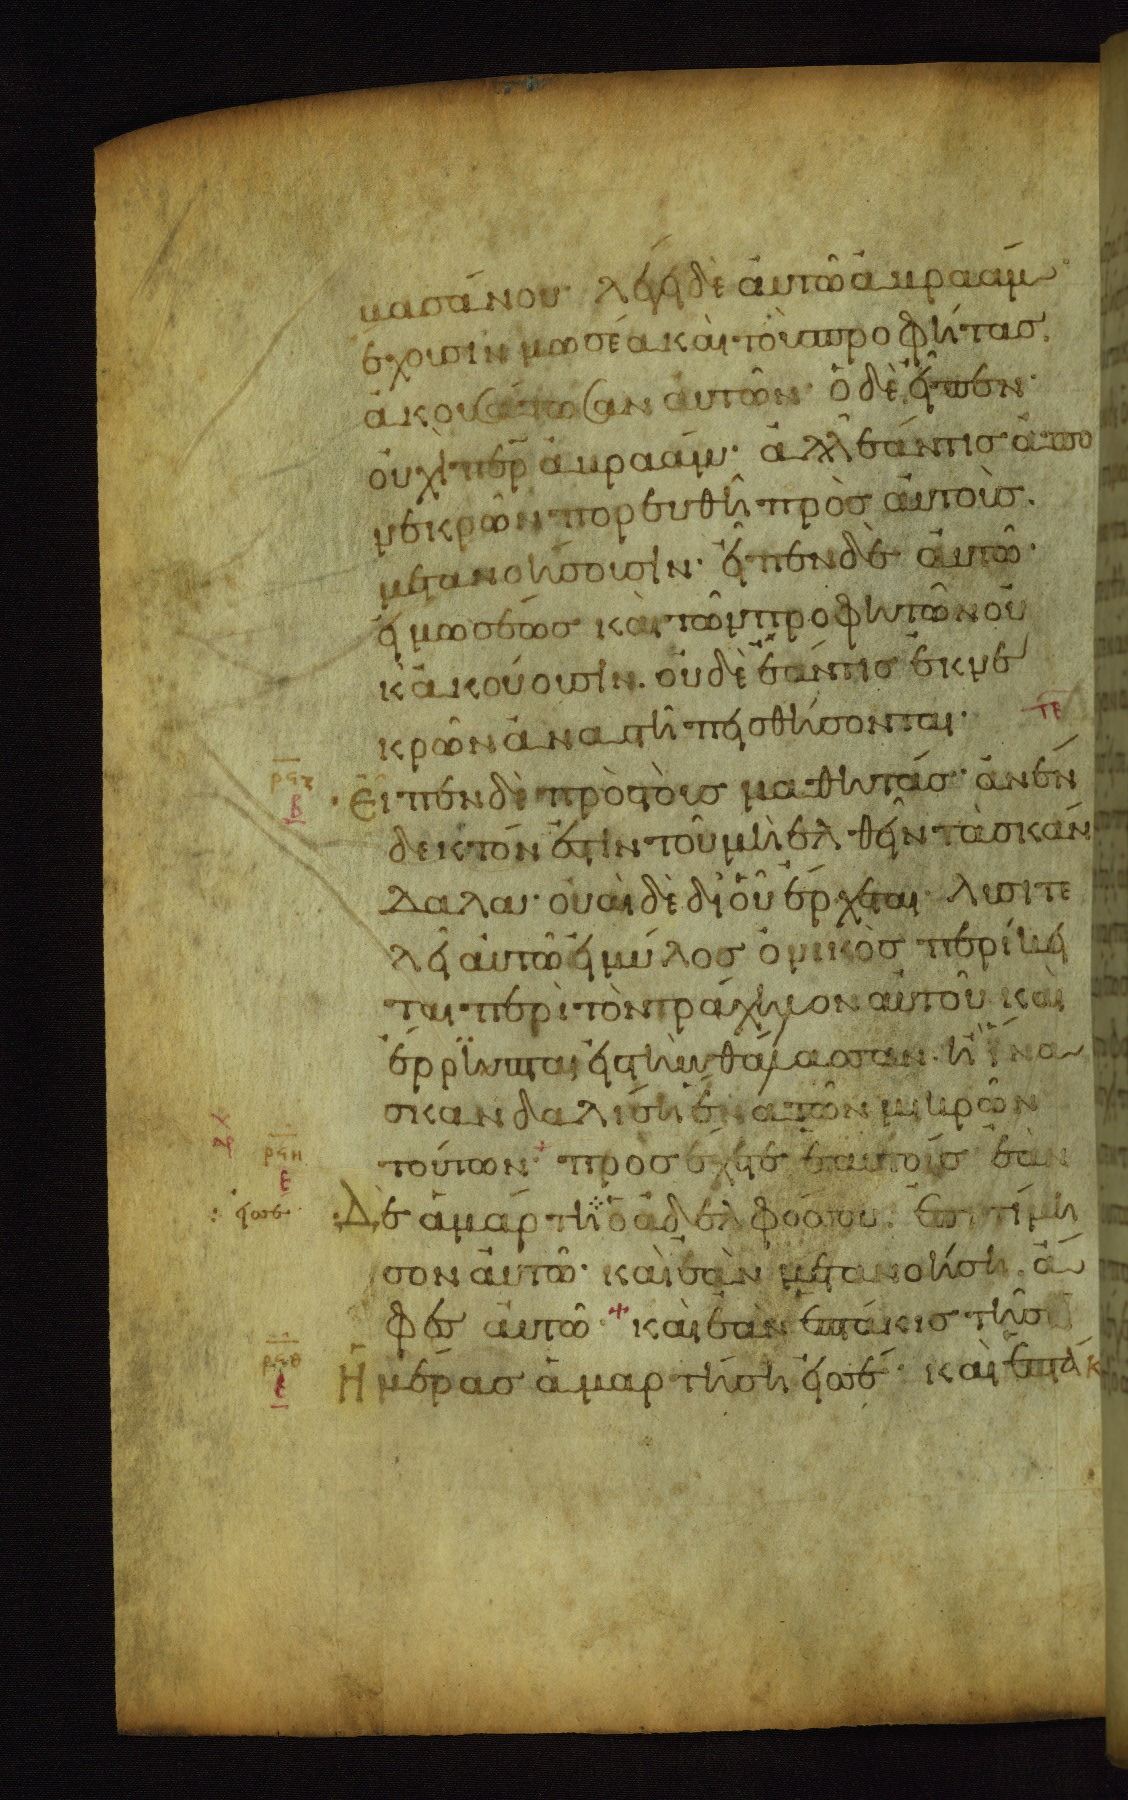 βασάνου· λέγει δὲ αὐτῶ ἀβραάμ
ἔχουσιν μωσέα καὶ τοὺς προφήτας.
ἀκουσάτωσαν αὐτῶν· ὁ δὲ εἶπεν·
οὐχὶ περ ἀβραάμ· ἀλλ ἐάν τις ἀπο
νεκρῶν πορευθῆ πρὸς αὐτοὺς.
μετανοήσουσιν· εἶπεν δὲ αὐτῶ·
εἰ μωσέως καὶ τῶν προφητῶν οὐ
κ ἀκούουσιν. οὐδὲ ἐάν τις ἐκ νε
κρῶν ἀναστῆ πεισθήσονται·
τε
ρϟζ
β
Εἶπεν δὲ πρὸς τοὺς μαθητάς· ἀνέν
δεκτόν ἐστιν τοῦ μὴ ἐλθεῖν τὰ σκάν
δαλα· οὐαὶ δὲ δι οὗ ἔρχεται· λυσιτε
λεῖ αὐτῶ εἰ μύλος ὀνικὸς περίκει
ται περὶ τὸν τράχηλον αὐτοῦ καὶ
ἔρριπται εἰς τὴν θάλασσαν. ἢ ἵνα
σκανδαλίση ἕνα τῶν μικρῶν
τούτων· + προσέχετε ἑαυτοῖς ἐὰν
ρϟη
ε
Δὲ ἁμάρτη ὁ ἀδελφός σου. ἐπιτίμη
σον αὐτῶ· καὶ ἐὰν μετανοήση. ἄ
φες αὐτῶ· + καὶ ἐὰν ἑπτάκις τῆς
ρϟθ
ε
Ἡμέρας ἁμαρτήση εἰς σέ· καὶ ἑπτάκ
εἰς σέ·